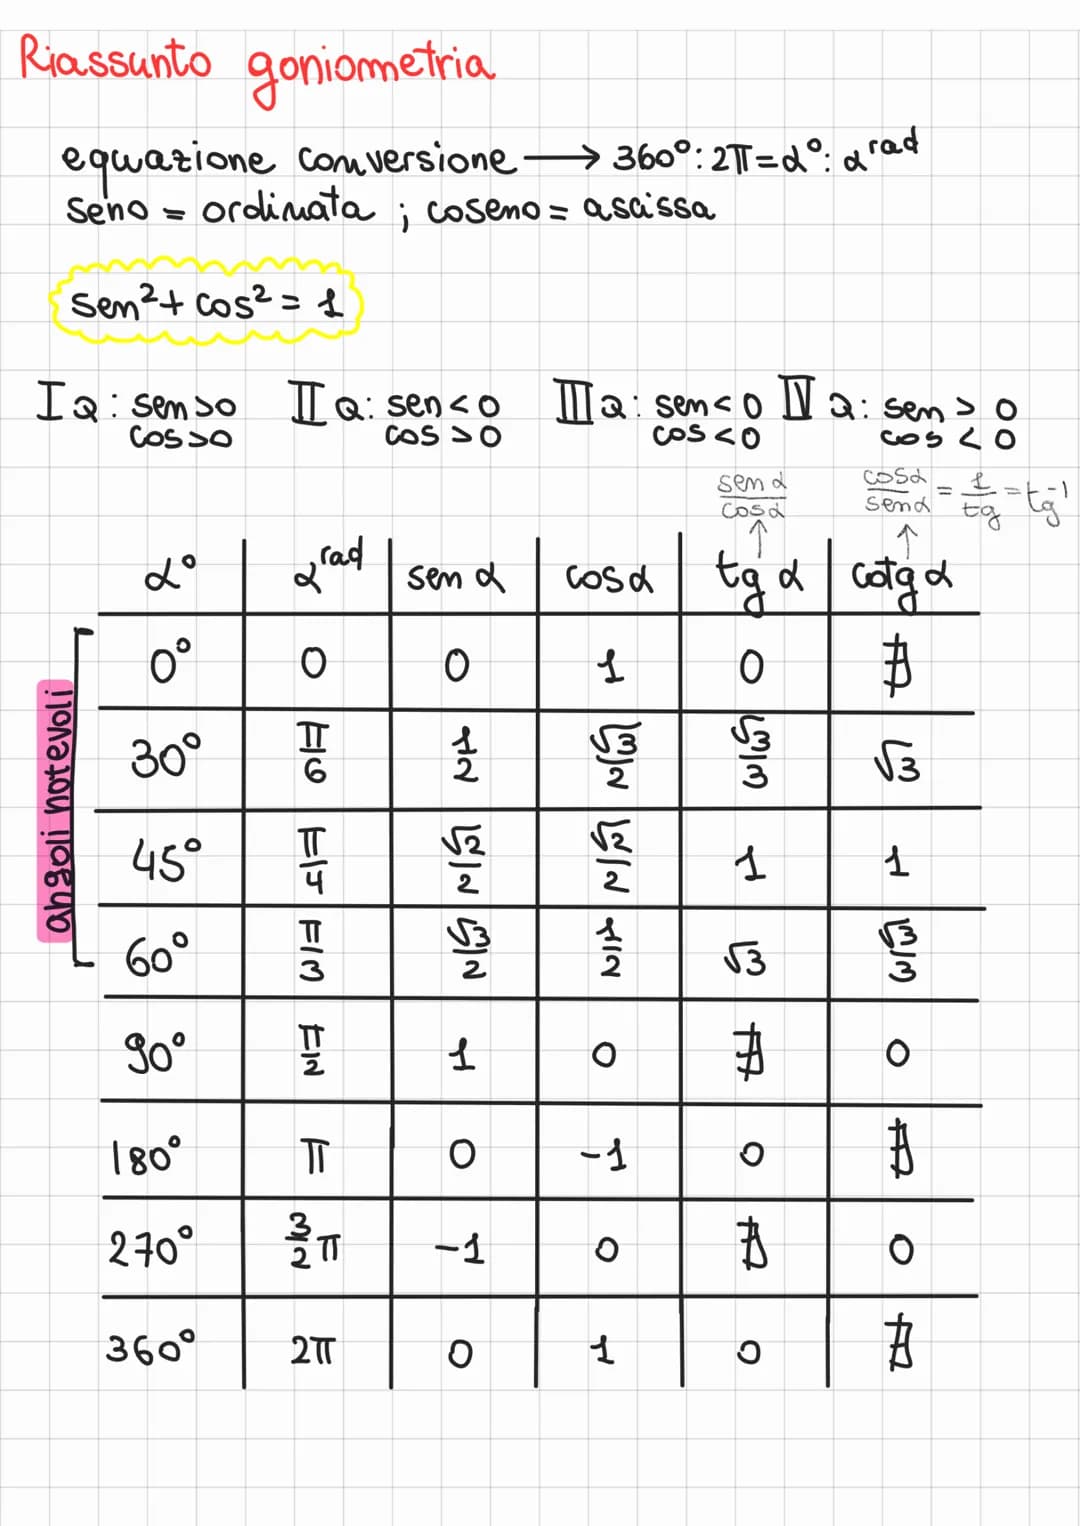 Riassunto goniometria
equazione conversione → 360°: 2π = α°: α^rad
seno = ordinata ; coseno = ascissa
sen² + cos² = 1
I Q: sen >0 II Q: sen <0 III Q: sen <0 IV Q: sen > 0
cos >0 cos >0 cos <0 cos < 0
sen α / cos α cos α / sen α = 1/tg = tg⁻¹
α° α^rad sen α cos α tg α cotg α
angoli notevoli
0° 0 0 1 0 ∄
30° π/6 1/2 √3/2 √3/3 √3
45° π/4 √2/2 √2/2 1 1
60° π/3 √3/2 1/2 √3 √3/3
90° π/2 1 0 ∄ 0
180° π 0 -1 0 ∄
270° 3/2 π -1 0 ∄ 0
360° 2π 0 1 0 ∄